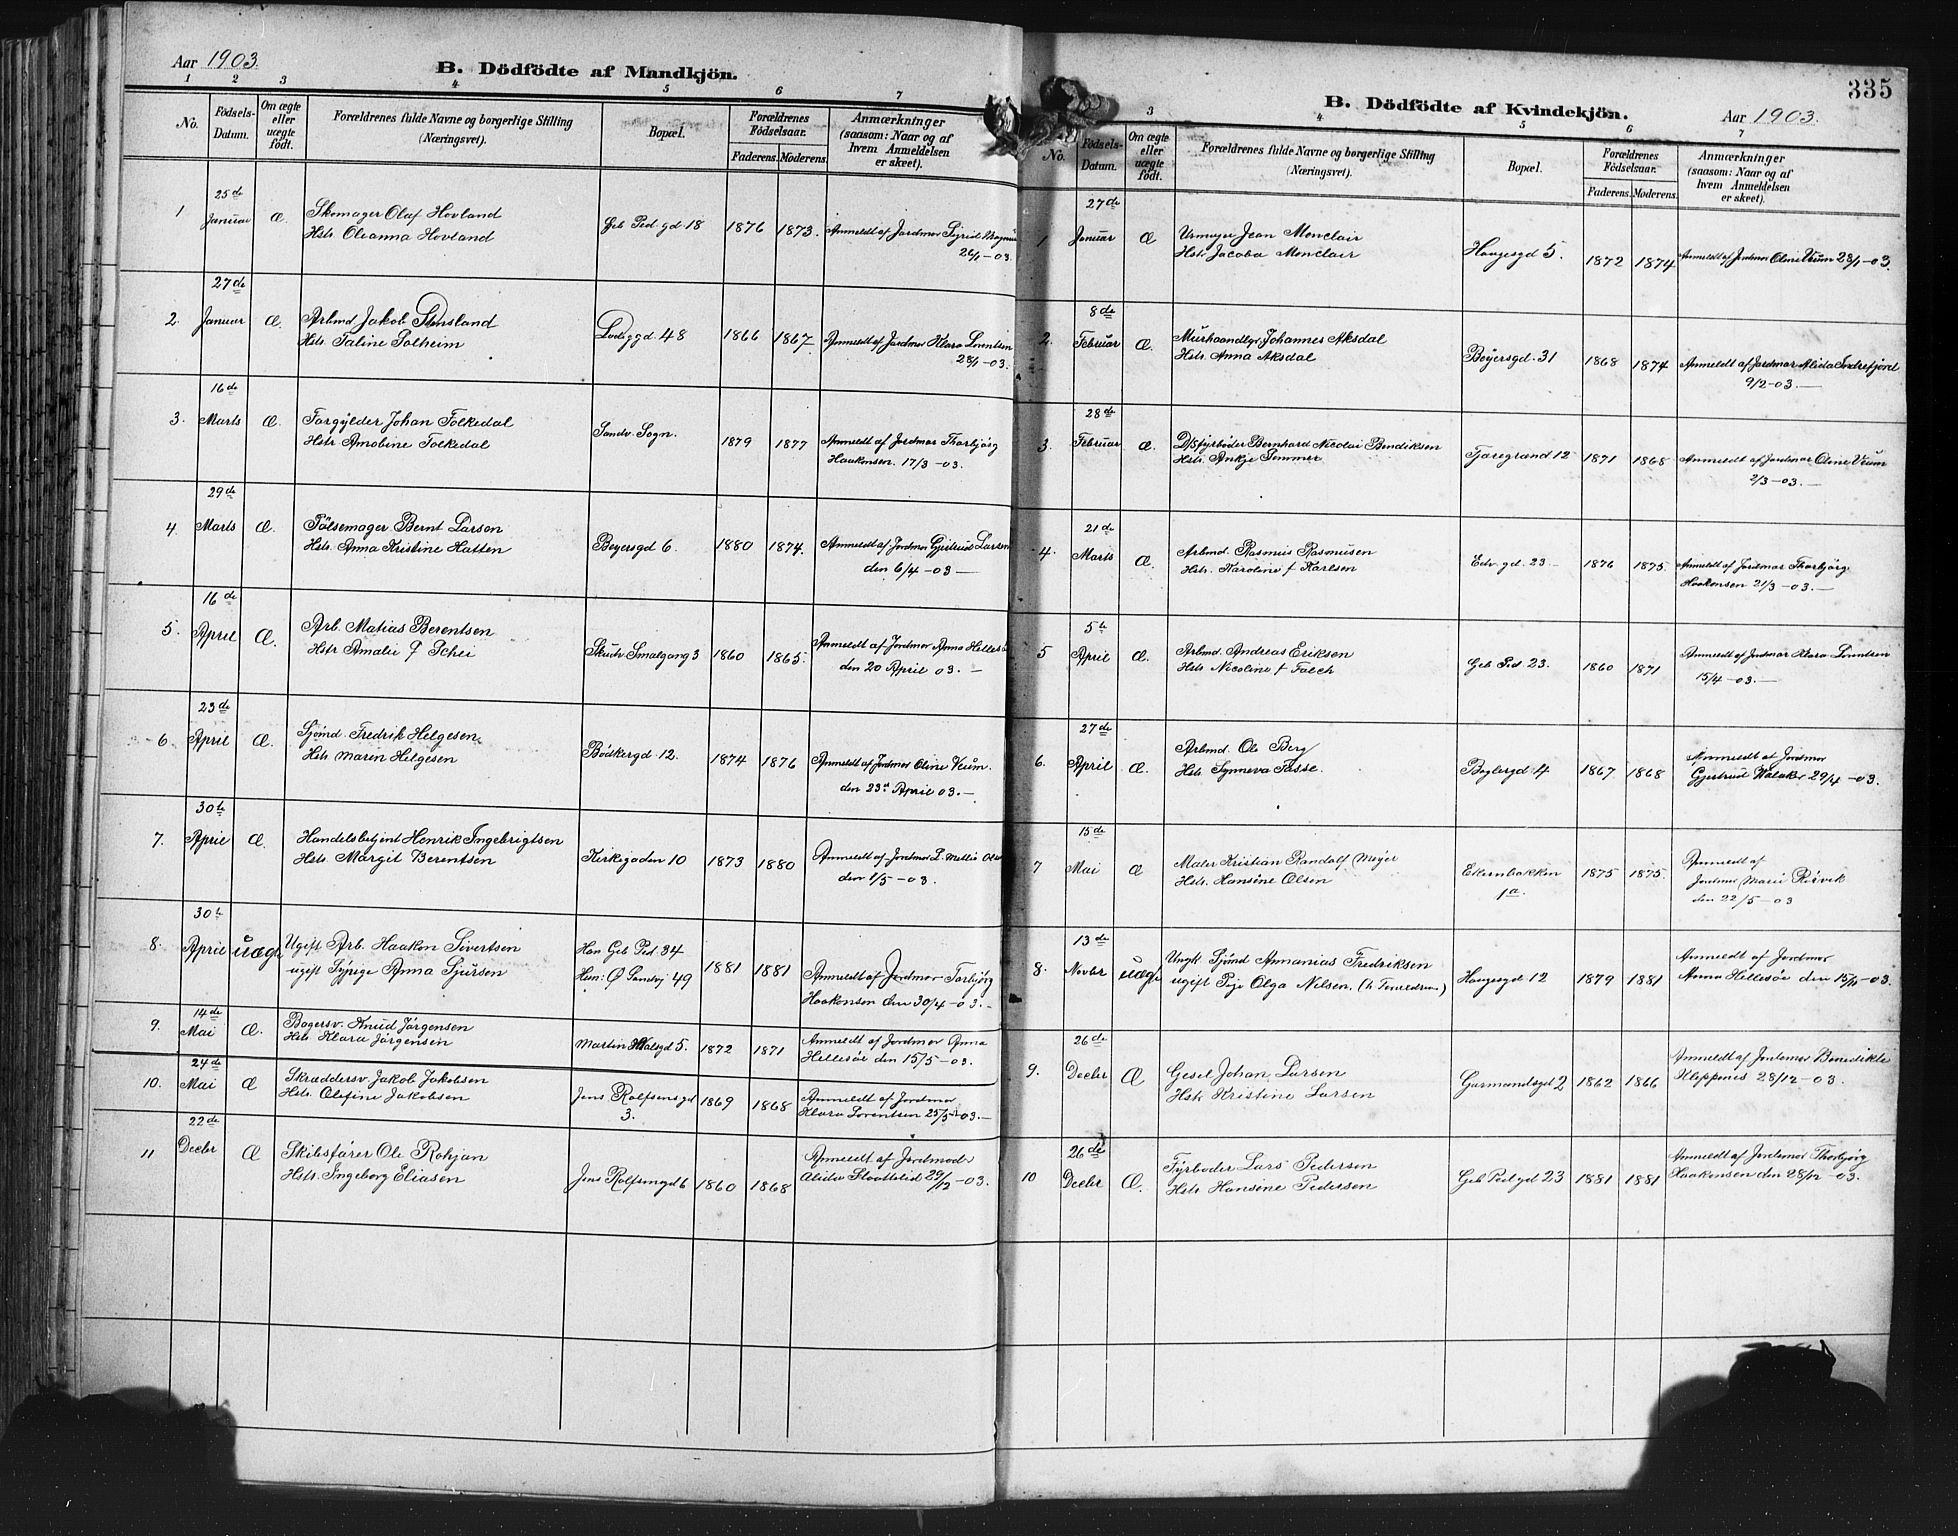 Aar 1903.
B. Dödfödte af Mandkjön.
1 2 3 4 5 6 7
No. Födsels-Datum. Om ægte eller uægte födt. Forældrenes fulde Navne og borgerlige Stilling (Næringsvei). Bopæl. Forældrenes Födselsaar. Faderens. Moderens. Anmærkninger (saasom: Naar og af hvem Anmeldelsen er skeet).
25de
1 Januar Æ. Skomager Olaf Hovland Geb Ped gd 18 1876 1873. Anmeldt af Jordmor Sigrid
Hstr. Oleanna Hovland 26/1-03.
27de
2. Januar Æ. Arbmd Jakob Stensland 48 1866 1867. Anmeldt af Jordmor Klara Lorentsen
Hstr. Taline Solheim 28/1-03.
16de
3. Marts Æ. Forgylder Johan Folkedal Sandv. Sogn. 1879 1877 Anmeldt af Jordmor Thorbjörg
Hstr. Amobine Folkedal Haakonsen. 17/3-03.
29de
4 Marts Æ. Pölsemager Bernt Larsen Beyersgd 6. 1880 1874. Anmeldt af Jordmor Gjertrud Larsen
Hstr. Anna Kristine Hatten den 6/4-03 —
16de
5. April Æ. Arb. Matias Berentsen Skutv. Smalgang 3 1860 1865. Anmeldt af Jordmor Anna Hellesö
Hstr Amalie f Schei den 20 April 03. —
23de
6. April Æ. Sjömd. Fredrik Helgesen Bödkergd 12. 1874 1876 Anmeldt af Jordmor Oline Veum.
Hstr. Maren Helgesen den 23de April 03. —
30te
7. April Æ. Handelsbetjent Henrik Ingebrigtsen Kirkegaden 10 1873 1880 Anmeldt af Jordmor L. Mellie
Hstr. Margit Berentsen den 1/5-03.
30te
8. April uægte Ugift Arb. Haakon Sivertsen Han Geb Ped 34 1881 1881 Anmeldt af Jordmor Torbjörg
ugift Sypige Anna Sjursen Hun: Ø Sandvj 49 Haakonsen den 30/4-03. —
14de
9. Mai Æ. Bogersv. Knud Jörgensen Martin Valsgd 5. 1872 1871 Anmeldt af Jordmor Anna
Hstr. Klara Jörgensen Hellesöe den 15/5-03.
24de
10. Mai Æ Skræddersv. Jakob Jakobsen Jens Rolfsensgd 3. 1869 1868 Anmeldt af Jordmor
Hstr. Olefine Jakobsen Klara Lorentsen 25/5-03. —
22de
11 Decbr Æ Skibsförer Ole Rohjan Jens Rolfsensgd 6 1860 1868 Anmeldt af Jordmoder
Hstr. Ingeborg Eliasen Alida 29/12-03.
335
B. Dödfödte af Kvindekjön.
Aar 1903.
3 4 5 6 7
No. Födsels-Datum. Om ægte eller uægte födt. Forældrenes fulde Navne og borgerlige Stilling (Næringsvei). Bopæl. Forældrenes Födselsaar. Faderens. Moderens. Anmærkninger (saasom: Naar og af hvem Anmeldelsen er skeet).
27de
1 Januar Æ Urmager Jean Monclair Haugesgd 5. 1872 1874 Anmeldt af Jordmor Oline Veum 28/1-03.
Hstr Jacoba Monclair
8de
2. Februar Æ. Murhaandlgr. Johannes Aksdal Beyersgd. 31 1868 1874 Anmeldt af Jordmor Alida Indrefjord
Hstr. Anna Aksdal 9/2-03. —
28de
3. Februar Æ. D/Sfyrböder Bernhard Nicolai Bendiksen Taregrand 12 1871 1868 Anmeldt af Jordmor Oline Veum
Hstr. Ankje Sommer 2/3-03. —
21de
4. Marts Æ. Arbmd. Rasmus Rasmusen Edv gd. 23. 1876 1875. Anmeldt af Jordmor Thorbjörg
Hstr. Karoline f Karlsen Haakonsen 21/3-03. —
5te
5 April Æ. Arbmd. Andreas Eriksen Geb Ped 23. 1860 1871 Anmeldt af Jordmor Klara Lorentsen
Hstr. Nicoline f Falch 15/4-03. —
27de
6. April Æ. Arbmd. Ole Berg Böglergd 4 1867 1868 Anmeldt af Jordmor
Hstr. Synneva Fosse. Gjertrud Walaker 29/4-03.
15de
7 Mai Æ Maler Kristian Randolf Meyer Ekernbakken 1a. 1875 1875. Anmeldt af
Hstr. Hansine Olsen Jordmor Marie Rösvik
den 22/5-03
13de
8. Novbr uægte Ungk Sjömd Annanias Fredriksen Haugesgd 12 1879 1881 Anmeldt af Jordmor
ugift Pige Olga Nilsen. Anna Hellesöe den 15/11-03.
26de
9. Decbr Æ Gesel Johan Larsen Garmandsgd 2 1862 1866 Anmeldt af Jordemor Benedikte
Hstr. Kristine Larsen Kleppenes 28/12-03.
26de
10 Decbr Æ. Fyrböder Lars Pedersen Geb Ped gd 23 1881 1881 Anmeldt af Jordemor Thorbjörg
Hstr. Hansine Pedersen Haakonsen den 28/12-03.